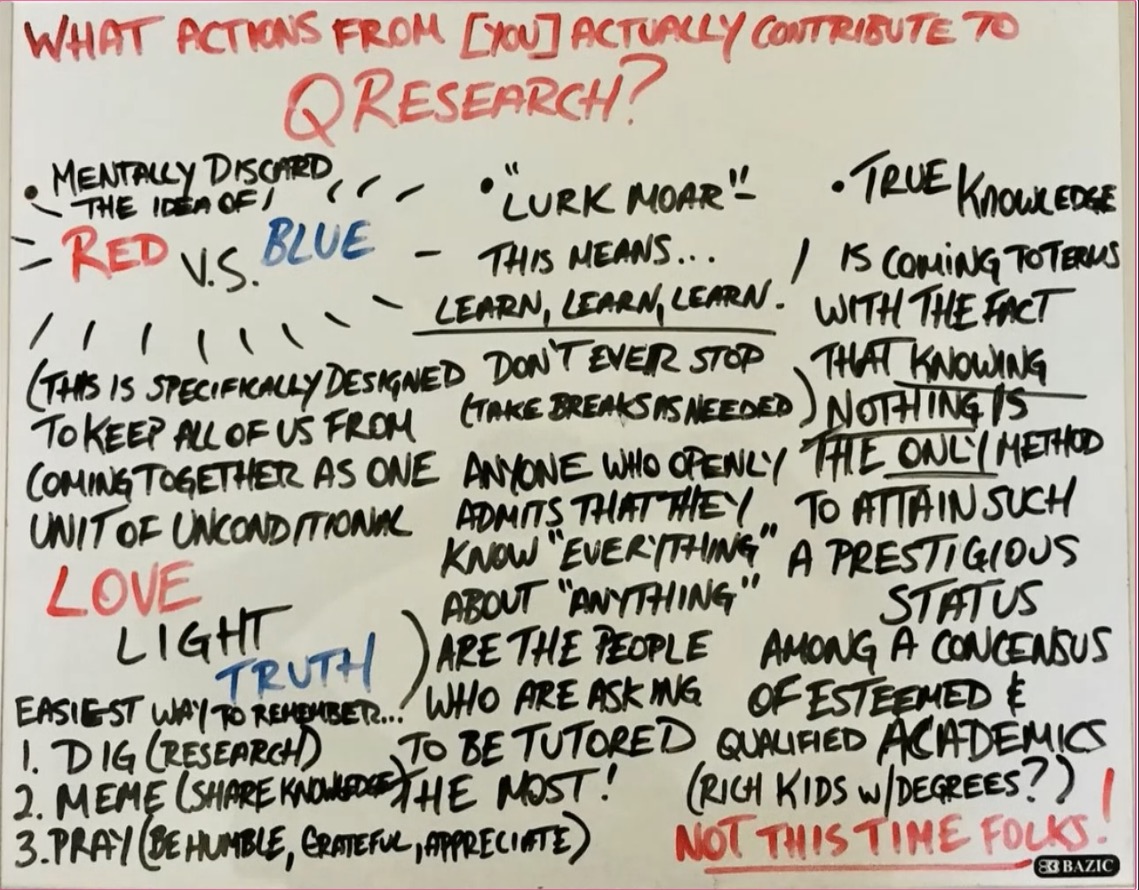 WHAT ACTIONS FROM [YOU] ACTUALLY CONTRIBUTE TO
QRESEARCH?
• MENTALLY DISCARD
THE IDEA OF!
RED V.S. BLUE
(THIS IS SPECIFICALLY DESIGNED
TO KEEP ALL OF US FROM
COMING TOGETHER AS ONE
UNIT OF UNCONDITIONAL
LOVE
LIGHT
TRUTH)
EASIEST WAY TO REMEMBER...
1. DIG (RESEARCH)
2. MEME (SHARE KNOWLEDGE)
3. PRAY (BE HUMBLE, GRATEFUL, APPRECIATE)
• "LURK MOAR" -
THIS MEANS...
LEARN, LEARN, LEARN.
DON'T EVER STOP
(TAKE BREAKS AS NEEDED)
ANYONE WHO OPENLY
ADMITS THAT THEY
KNOW "EVERYTHING"
ABOUT "ANYTHING"
ARE THE PEOPLE
WHO ARE ASKING
TO BE TUTORED
THE MOST!
• TRUE KNOWLEDGE
IS COMING TO TERMS
WITH THE FACT
THAT KNOWING
NOTHING IS
THE ONLY METHOD
TO ATTAIN SUCH
A PRESTIGIOUS
STATUS
AMONG A CONCENSUS
OF ESTEEMED &
QUALIFIED ACADEMICS
(RICH KIDS W/DEGREES?)
NOT THIS TIME FOLKS!
BAZIC